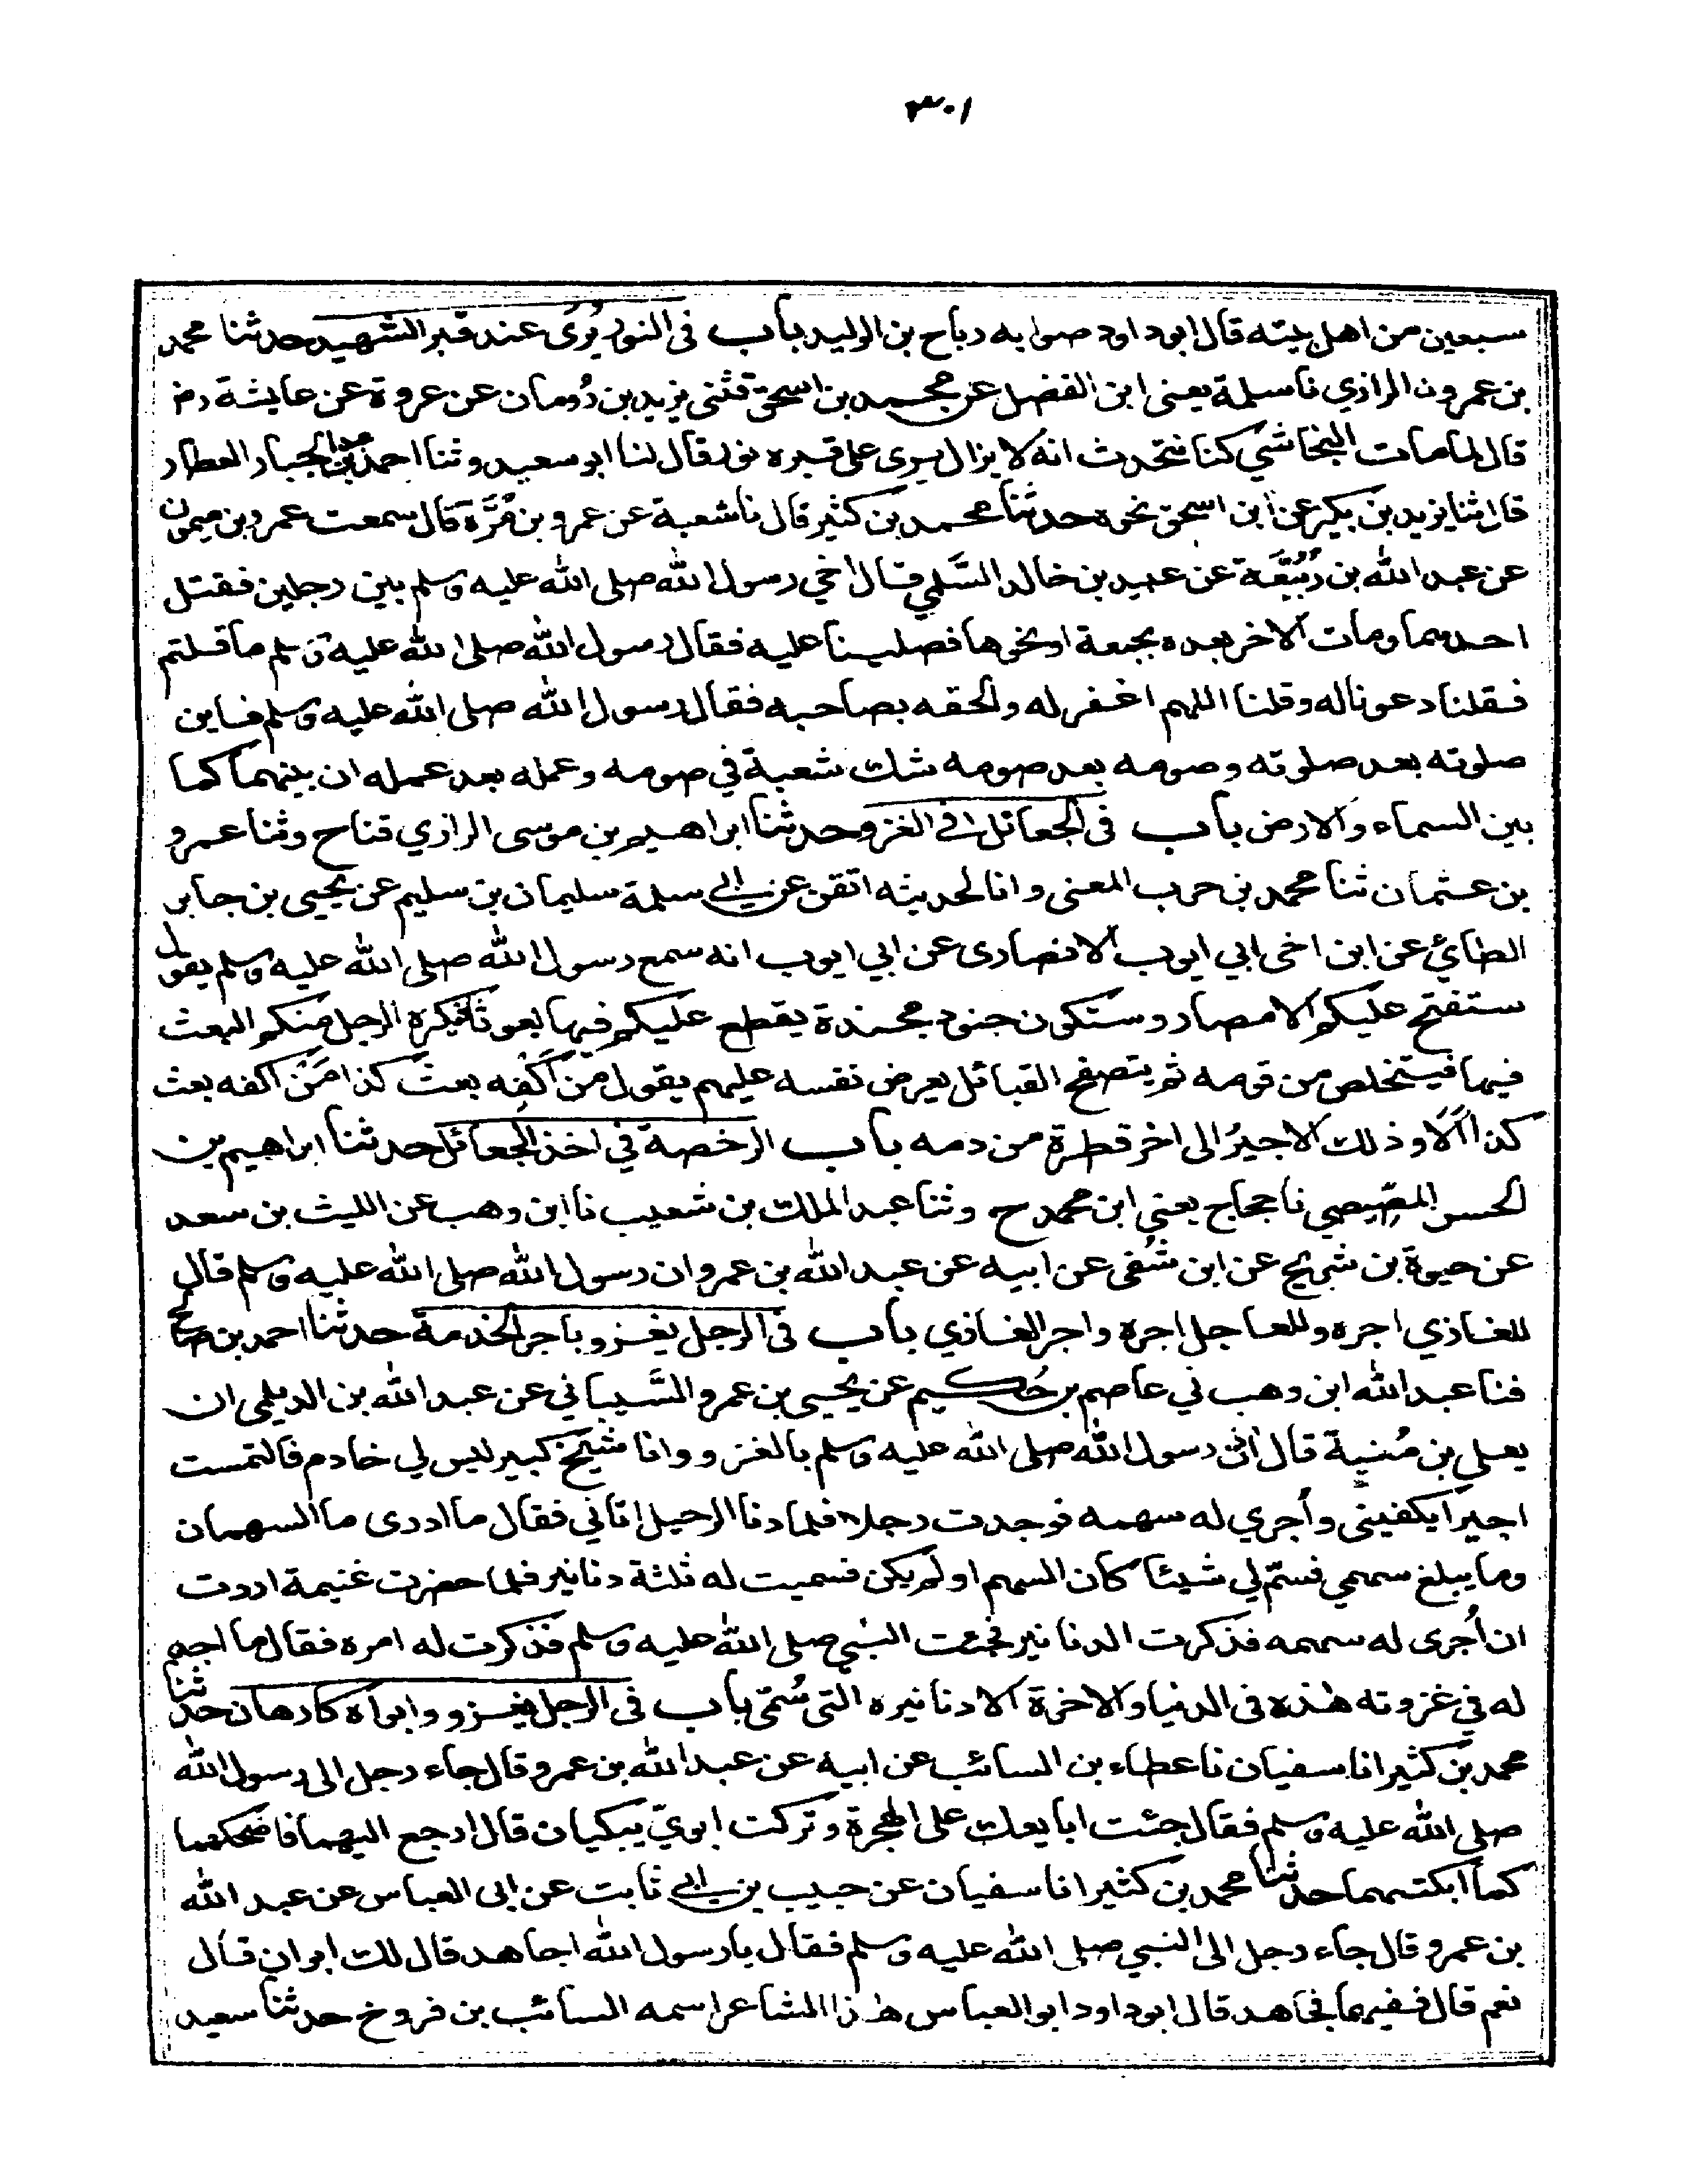 ٣٠١
سبعين من اهل بيته قال ابو داود صوابه رباح بن الوليد باب فى النور يُرى عند قبر الشهيد حدثنا محمد
بن عمرون الرازي نا سلمة يعنى ابن الفضل عن محمد بن اسحق قثنى يزيد بن رُومان عن عروة عن عايشة رض
قال لما مات النجاشي كنا نتحدث انه لا يزال يرى على قبره نور قال لنا ابو سعيد وثنا احمد بن عبد الجبار العطار
قال ثنا يزيد بن بكير عن ابن اسحق نحوه حدثنا محمد بن كثير قال نا شعبة عن عمرو بن مُرَّة قال سمعت عمرو بن ميمون
عن عبد الله بن رُبَيِّعَة عن عبيد بن خالد السَّلمي قال اخي رسول الله صلى الله عليه وسلم بين رجلين فقتل
احدهما ومات الاخر بعده بجمعة او نحوها فصلينا عليه فقال رسول الله صلى الله عليه وسلم ما قلتم
فقلنا دعونا له وقلنا اللهم اغفر له والحقه بصاحبه فقال رسول الله صلى الله عليه وسلم فاين
صلوته بعد صلوته وصومه بعد صومه شك شعبة في صومه وعمله بعد عمله ان بينهما كما
بين السماء والارض باب فى الجعائل فى الغزو حدثنا ابراهيم بن موسى الرازي قنا ح وثنا عمرو
بن عثمان ثنا محمد بن حرب المعنى وانا لحديثه اتقن عن ابي سلمة سليمان بن سليم عن يحيى بن جابر
الطائي عن ابن اخى ابي ايوب الانصارى عن ابي ايوب انه سمع رسول الله صلى الله عليه وسلم يقول
ستفتح عليكم الامصار وستكون جنود مجندة يقطع عليكم فيها بعوثا فيكره الرجل منكم البعث
فيها فيتخلص من قومه ثم يتصفح القبائل يعرض نفسه عليهم يقول من أكفِه بعث كذا مَن اكفه بعث
كذا ألا وذلك الاجيرُ الى اخر قطرة من دمه باب الرخصة في اخذ الجعائل حدثنا ابراهيم بن
الحسن المصّيصي نا حجاج يعني ابن محمد ح وثنا عبد الملك بن شعيب نا ابن وهب عن الليث بن سعد
عن حيوة بن شريح عن ابن شُفى عن ابيه عن عبد الله بن عمرو ان رسول الله صلى الله عليه وسلم قال
للغازي اجره وللجاعل اجره واجر الغازي باب فى الرجل يغزو باجر الخدمة حدثنا احمد بن صالح
قنا عبد الله ابن وهب ني عاصم بن حُكيم عن يحيى بن عمرو السَّيباني عن عبد الله بن الديلمى ان
يعلى بن مُنية قال اذن رسول الله صلى الله عليه وسلم بالغزو وانا شيخ كبير ليس لي خادم فالتمست
اجيرا يكفينى وأجري له سهمه فوجدت رجلا فلما دنا الرحيل اتاني فقال ما ادرى ما السهمان
وما يبلغ سهمي فسمّ لي شيئا كان السهم او لم يكن فسميت له ثلثة دنانير فلما حضرت غنيمة اردت
ان أُجرى له سهمه فذكرت الدنانير فجئت النبي صلى الله عليه وسلم فذكرت له امره فقال ما اجد
له في غزوته هذه فى الدنيا والاخرة الا دنانيره التى سُمّى باب فى الرجل يغزو وابواه كارهان حدثنا
محمد بن كثير انا سفيان نا عطاء بن السائب عن ابيه عن عبد الله بن عمرو قال جاء رجل الى رسول الله
صلى الله عليه وسلم فقال جئت ابايعك على الهجرة وتركت ابويّ يبكيان قال ارجع اليهما فاضحكهما
كما ابكتهما حدثنا محمد بن كثير انا سفيان عن حبيب بن ابي ثابت عن ابى العباس عن عبد الله
بن عمرو قال جاء رجل الى النبي صلى الله عليه وسلم فقال يا رسول الله اجاهد قال لك ابوان قال
نعم قال ففيهما فجاهد قال ابو داود ابو العباس هذا الشاعر اسمه السائب بن فروخ حدثنا سعيد